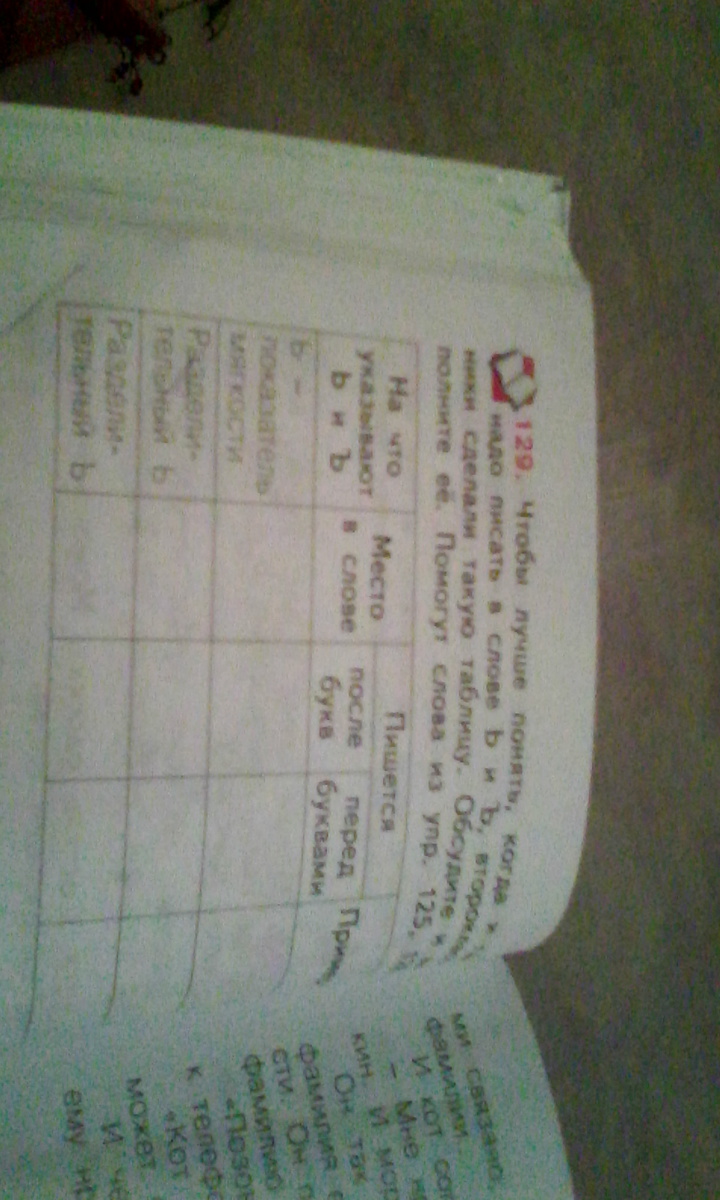 129. Чтобы лучше понять, когда и
надо писать в слове Ь и Ъ, второкла
ники сделали такую таблицу. Обсудите и
полните её. Помогут слова из упр. 125,
На что указывают Ь и Ъ
Место в слове
Пишется
после букв
перед буквами
Прим
Ь – показатель мягкости
Раздели-
тельный Ь
Раздели-
тельный Ъ
ми связано,
фамилии.
И кот
– Мне
И мор
кин.
Он так
фамилия
сти. Он
фамилию
«Позов
к телефо
«Кот
может
И че
ему